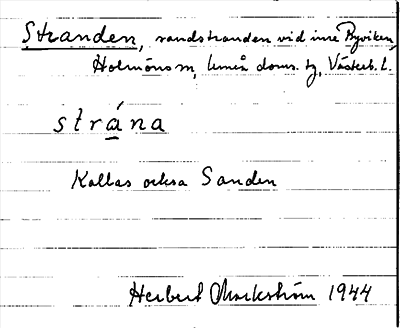 Stranden, sandstranden vid inre Byviken,
Holmöns sn, Umeå doms. tg, Västerb. l.
strána
Kallas också Sanden
Herbert Markström 1944